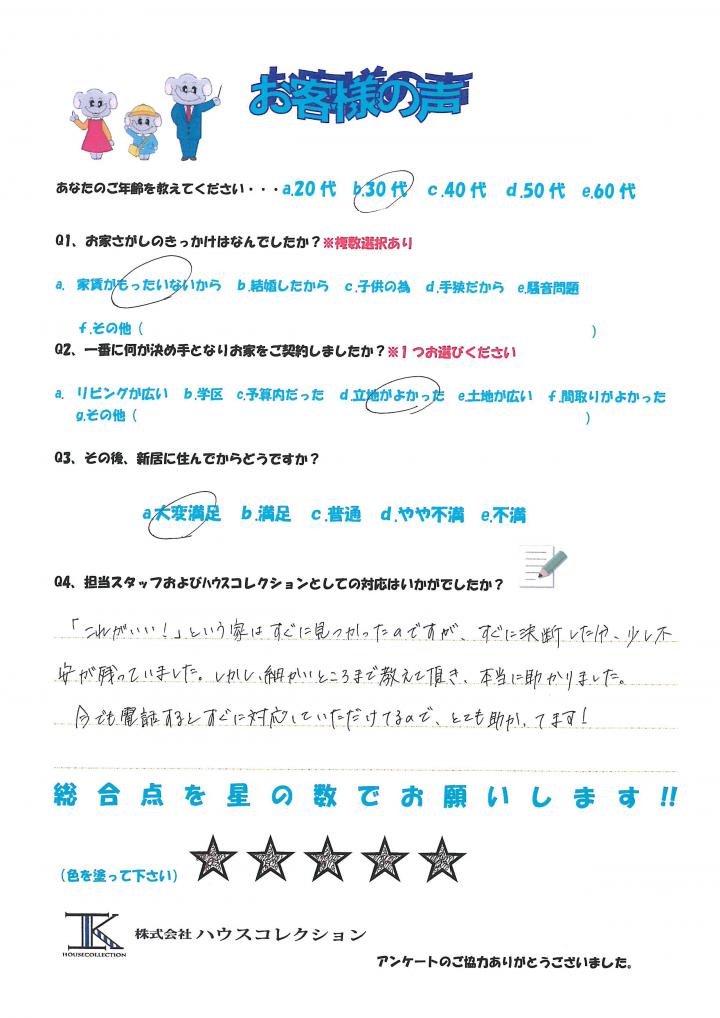 お客様の声
あなたのご年齢を教えてください・・・a.20代 b.30代 c.40代 d.50代 e.60代
Q1、お家さがしのきっかけはなんでしたか？※複数選択あり
a. 家賃がもったいないから b.結婚したから c.子供の為 d.手狭だから e.騒音問題
f.その他（ ）
Q2、一番に何が決め手となりお家をご契約しましたか？※１つお選びください
a. リビングが広い b.学区 c.予算内だった d.立地がよかった e.土地が広い f.間取りがよかった
g.その他（ ）
Q3、その後、新居に住んでからどうですか？
a.大変満足 b.満足 c.普通 d.やや不満 e.不満
Q4、担当スタッフおよびﾊｳｽコレクションとしての対応はいかがでしたか？
「これがいい！」という家はすぐに見つかったのですが、すぐに決断した分、少し不
安が残っていました。しかし、細かいところまで教えて頂き、本当に助かりました。
今でも電話するとすぐに対応していただけてるので、とても助かってます！
総合点を星の数でお願いします!!
（色を塗って下さい）
HOUSECOLLECTION
株式会社 ハウスコレクション
アンケートのご協力ありがとうございました。